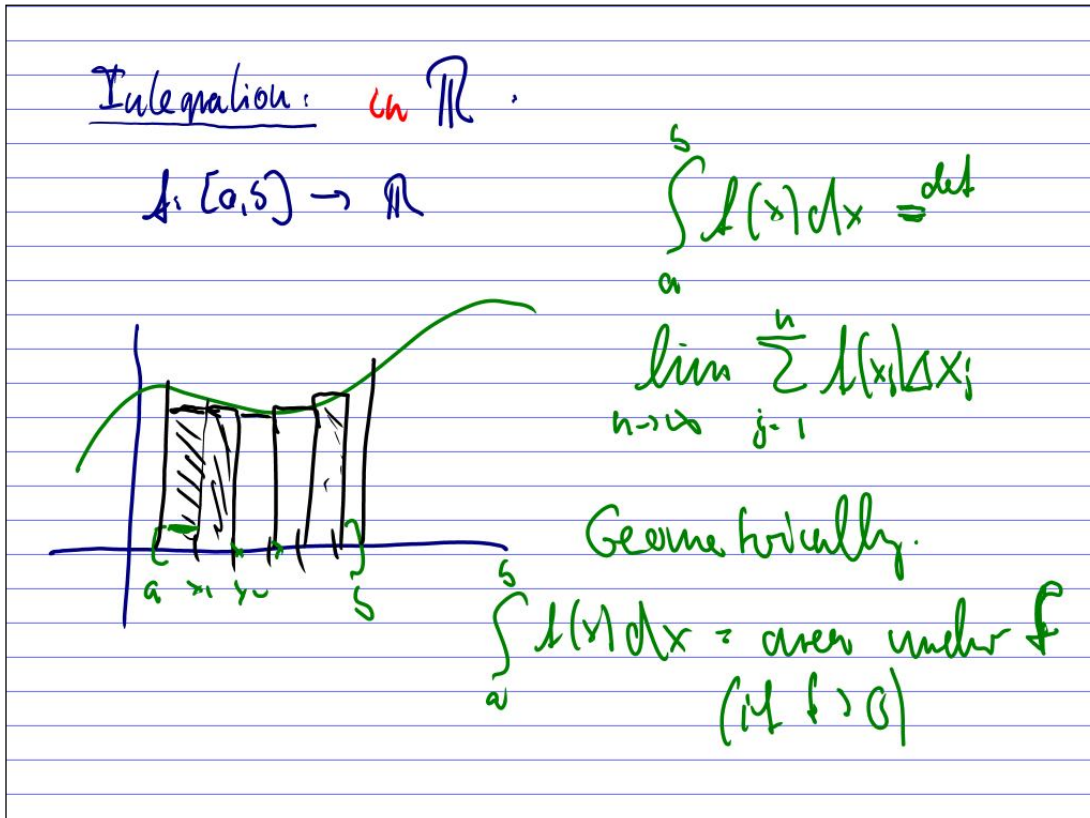 Integration: in ℝ.
f: [a,b] → ℝ
∫_a^b f(x)dx =^def
lim_{n→∞} ∑_{j=1}^n f(x_j)Δx_j
a x_1 x_2 b
Geometrically.
∫_a^b f(x)dx = area under f
(if f > 0)